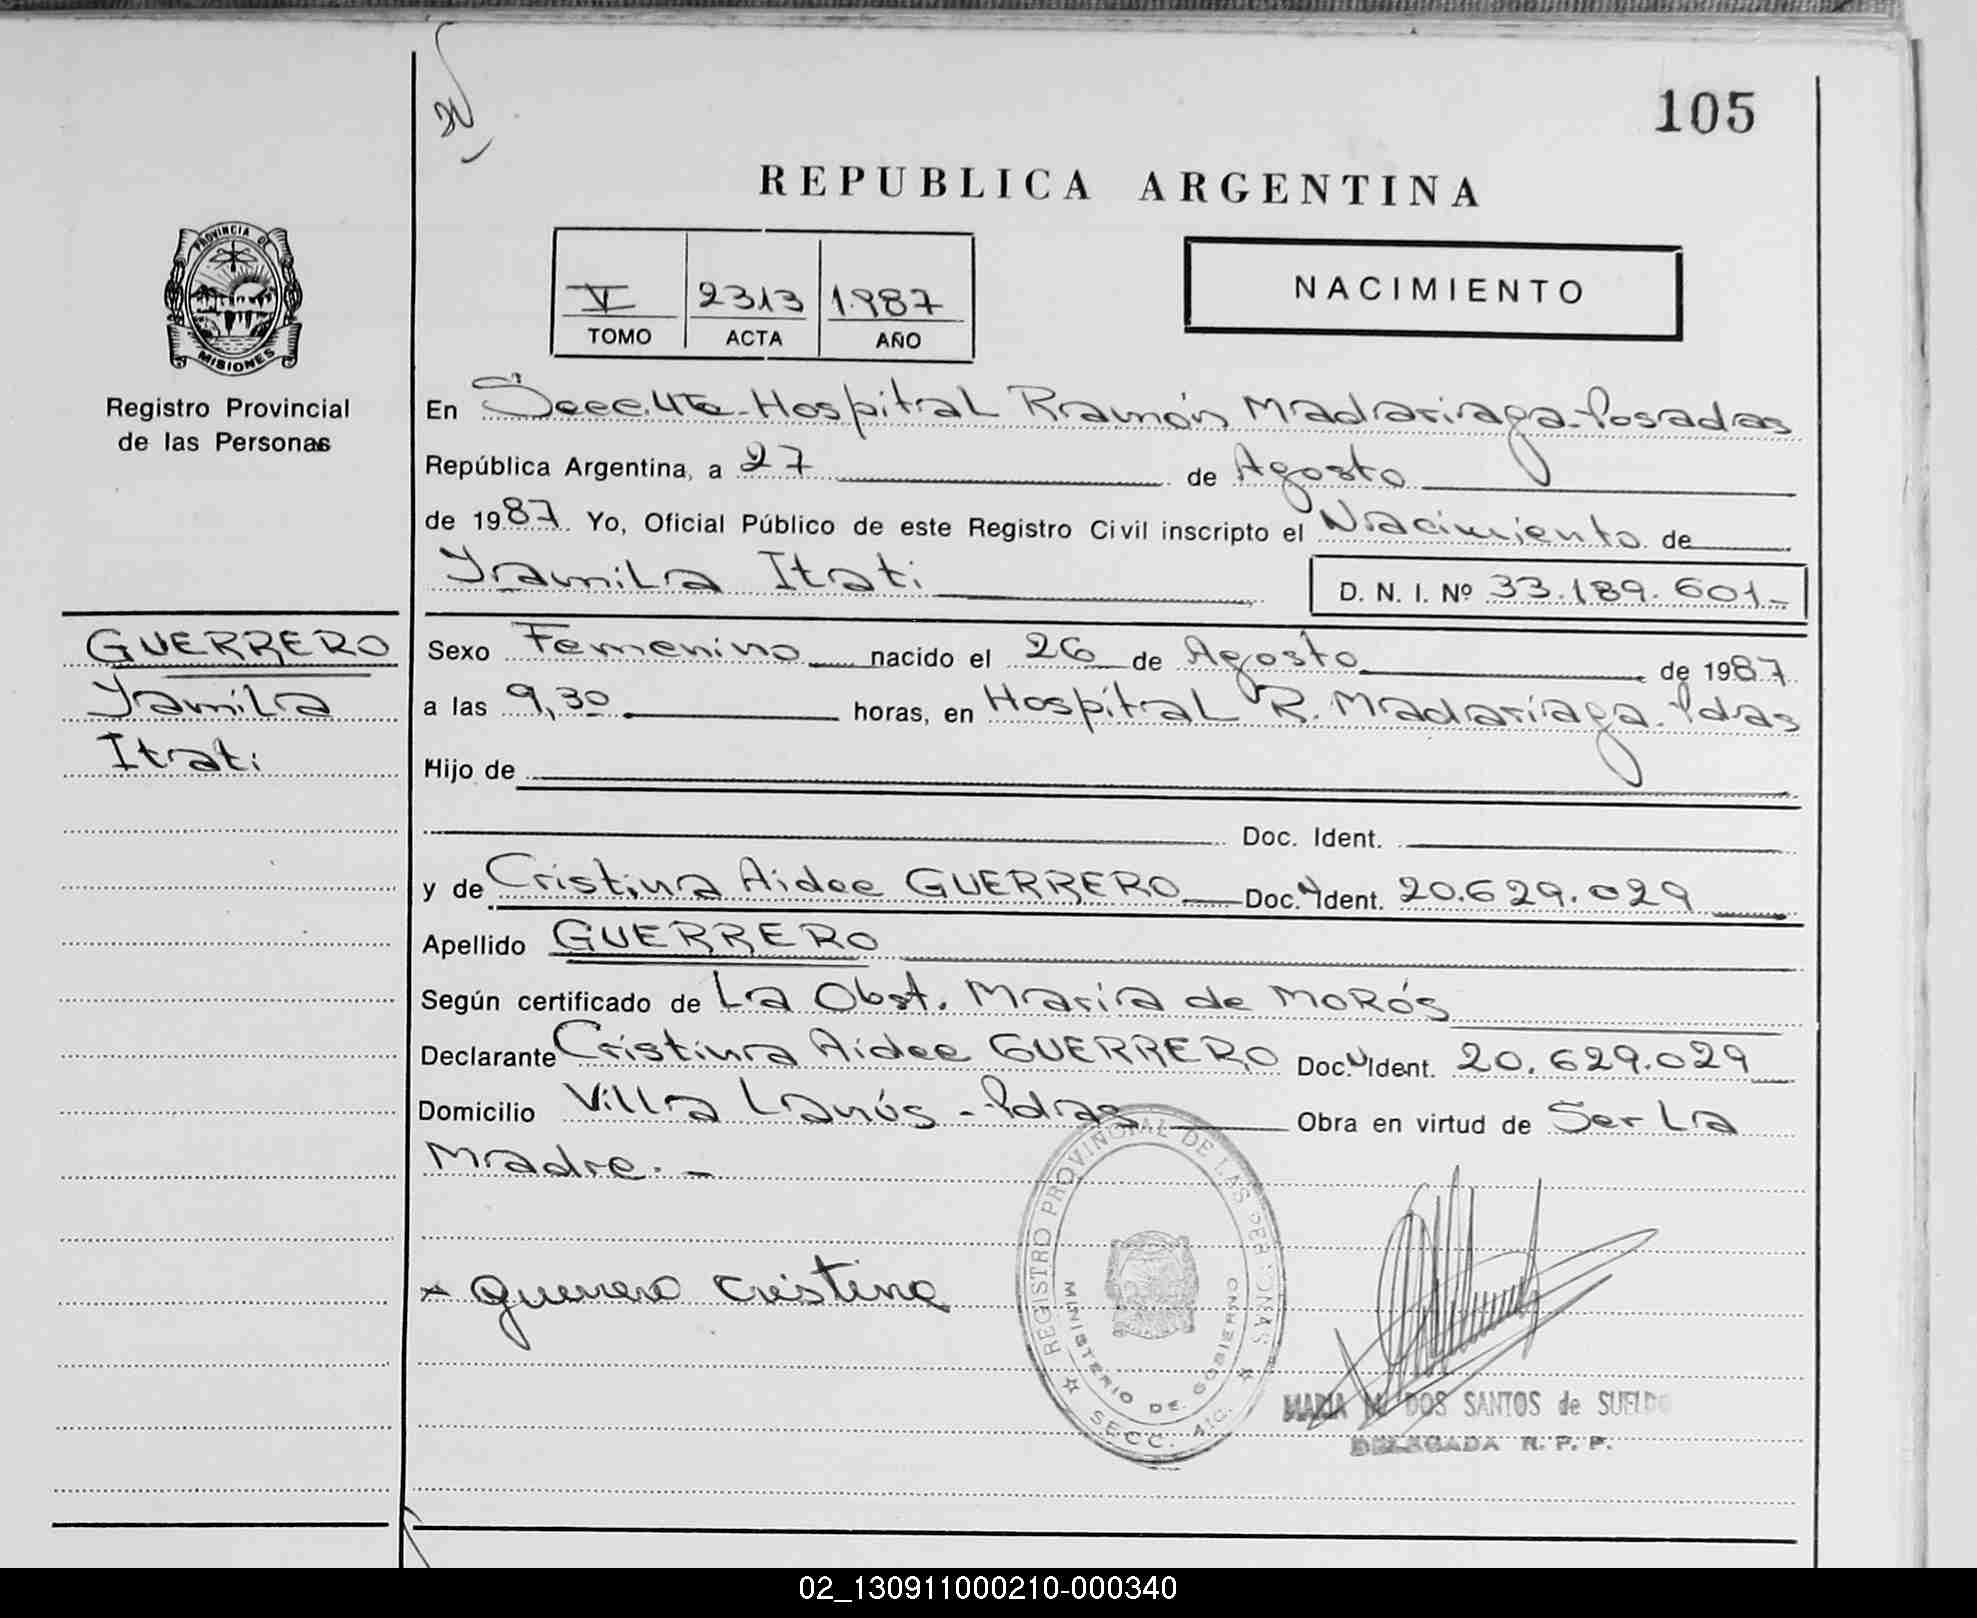 105
REPUBLICA ARGENTINA
PROVINCIA DE
MISIONES
Registro Provincial
de las Personas
V 2313 1.987
TOMO ACTA AÑO
NACIMIENTO
En Secc. 4ta - Hospital Ramón Madariaga - Posadas
República Argentina, a 27 de Agosto
de 1987. Yo, Oficial Público de este Registro Civil inscripto el Nacimiento de
Yamila Itati
D. N. I. Nº 33.189.601-
GUERRERO
Yamila
Itati
Sexo Femenino nacido el 26 de Agosto de 1987.
a las 9,30 horas, en Hospital R. Madariaga - Pdas
Hijo de
Doc. Ident.
y de Cristina Aidee GUERRERO Doc. N Ident. 20.629.029
Apellido GUERRERO
Según certificado de La Obst. Maria de MORós
Declarante Cristina Aidee GUERRERO Doc. N Ident. 20.629.029
Domicilio Villa Lanús - Pdas Obra en virtud de Ser La
Madre. -
x Guerrero Cristina
REGISTRO PROVINCIAL DE LAS PERSONAS
MINISTERIO DE GOBIERNO
SECC.
MARIA M. DOS SANTOS de SUELDO
DELEGADA R. P. P.
02_130911000210-000340